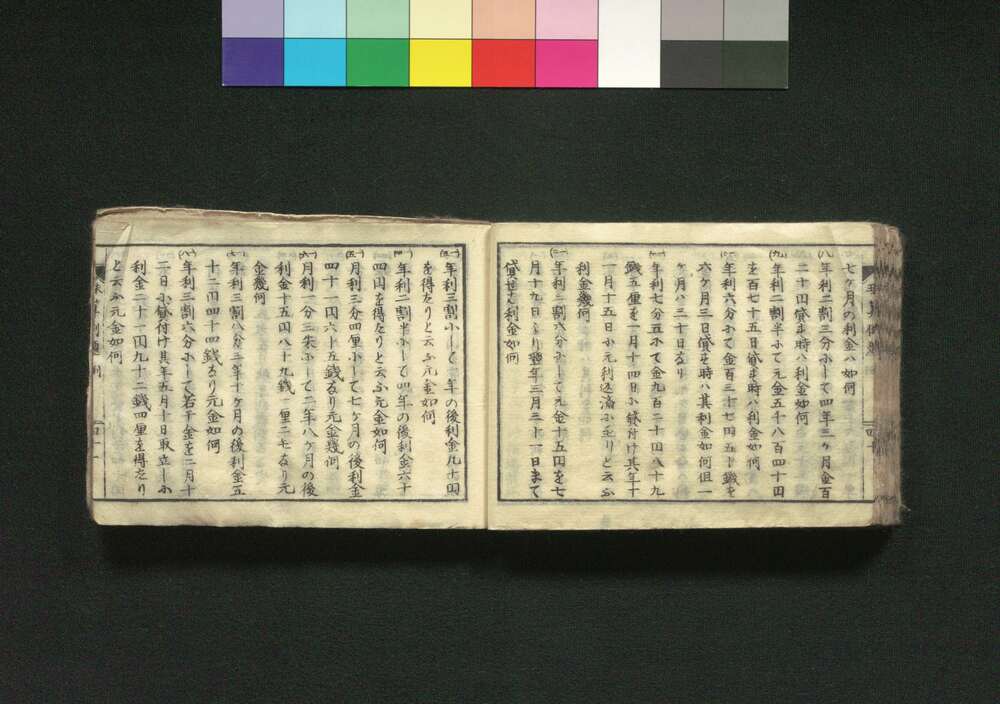 七ヶ月の利金ハ如何
(八)年利二割三分にして四年三ヶ月金百
二十円貸す時ハ利金如何
(九)年利二割半にて元金五千八百四十円
を百七十五日貸す時ハ利金如何
年利六分にて金百三十七円五十銭を
六ヶ月三日貸す時ハ其利金如何但一
ヶ月ハ三十日なり
年利七分五にて金九百二十円八十九
銭五厘を一月十四日に貸付け其年十
一月十五日に元利返済に至りと云ふ
利金幾何
年利二割六分にして元金十五円を七
月十九日より翌年三月三十一日まで
貸せし利金如何
年利三割にして二年の後利金九十円
を得たりと云ふ元金如何
年利二割半にして四年の後利金六十
四円を得たりと云ふ元金如何
月利三分四厘にして七ヶ月の後利金
四十一円六十五銭なり元金幾何
月利一分三朱にして二年八ヶ月の後
利金十五円八十九銭一厘二毛なり元
金幾何
年利三割八分二年十ヶ月の後利金五
十二円四十四銭なり元金如何
(八)年利三割六分にして若干金を二月十
二日に貸付け其年五月十日取立しに
利金二十一円九十二銭四厘を得たり
と云ふ元金如何